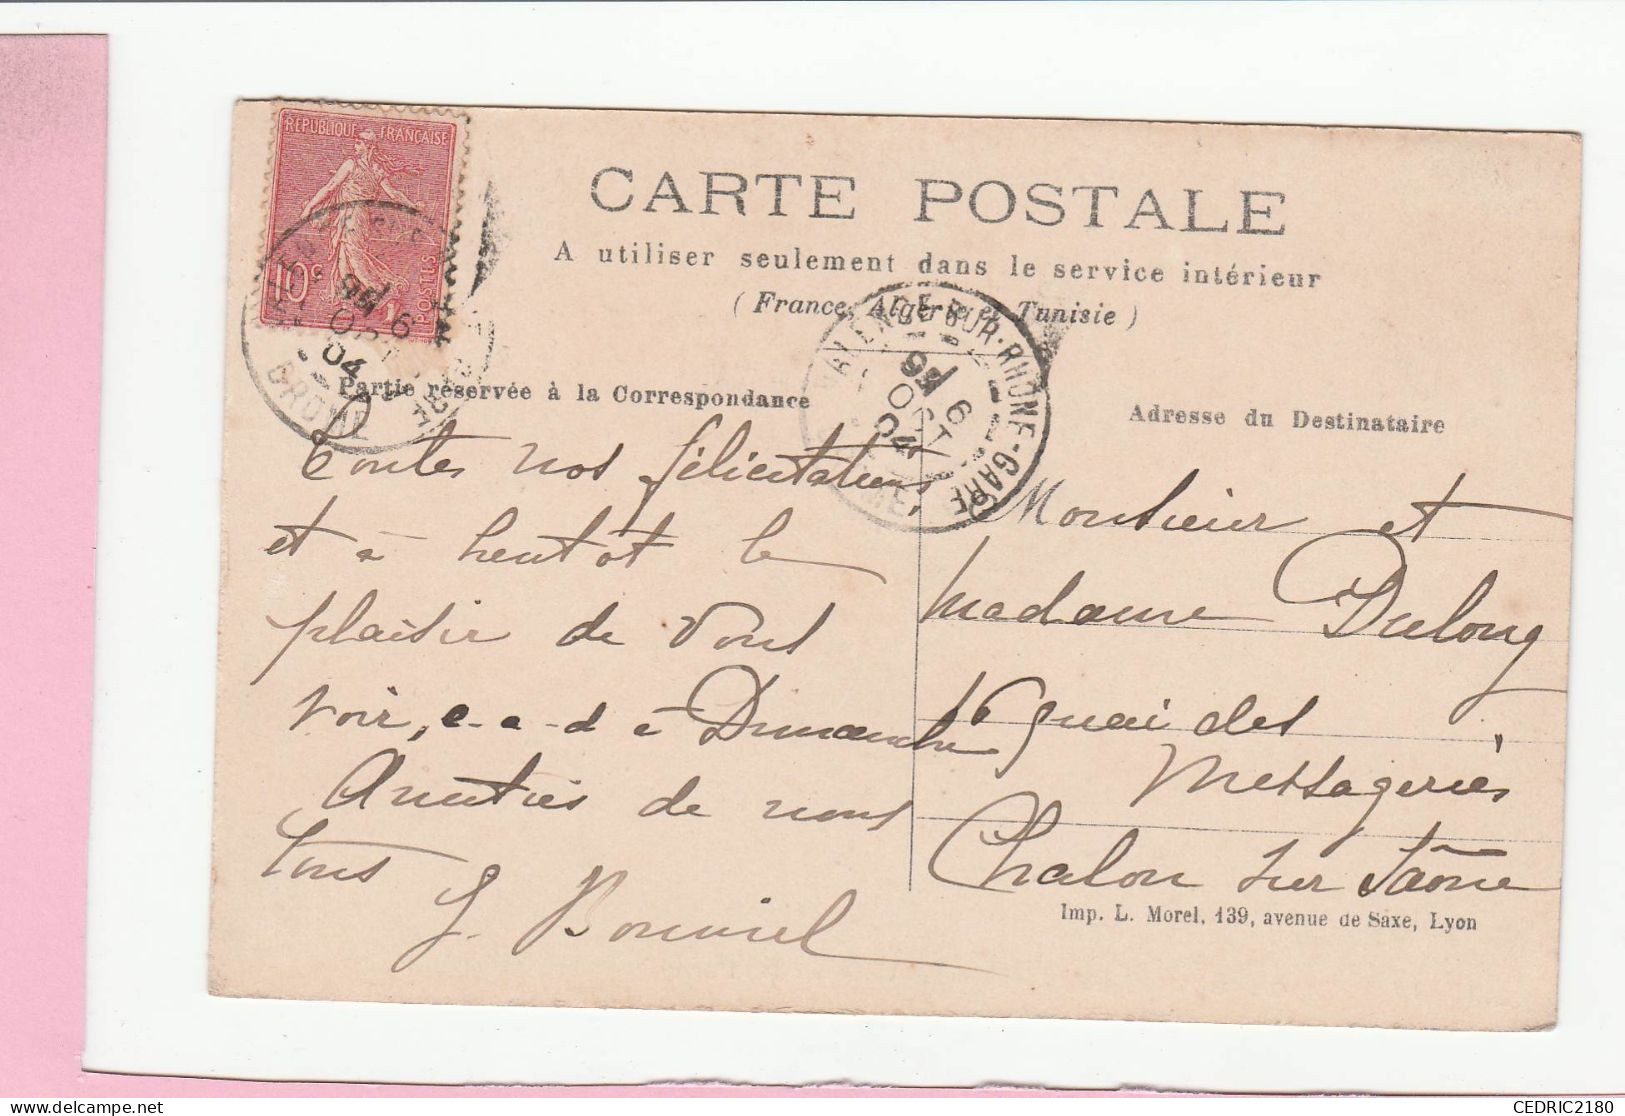 RÉPUBLIQUE FRANÇAISE
10c
POSTES
CARTE POSTALE
A utiliser seulement dans le service intérieur
(France, Algérie et Tunisie)
VALENCE-SUR-RHÔNE-GARE
6
OCT
04
DROME
Partie réservée à la Correspondance
Toutes nos félicitations,
et à bientôt le
plaisir de vous
voir, c-a-d à Dimanche
Amitiés de nous
tous
Adresse du Destinataire
Monsieur et
Madame Dulong
16 quai des
Messageries
Chalon sur Saône
Imp. L. Morel, 139, avenue de Saxe, Lyon
CEDRIC2180